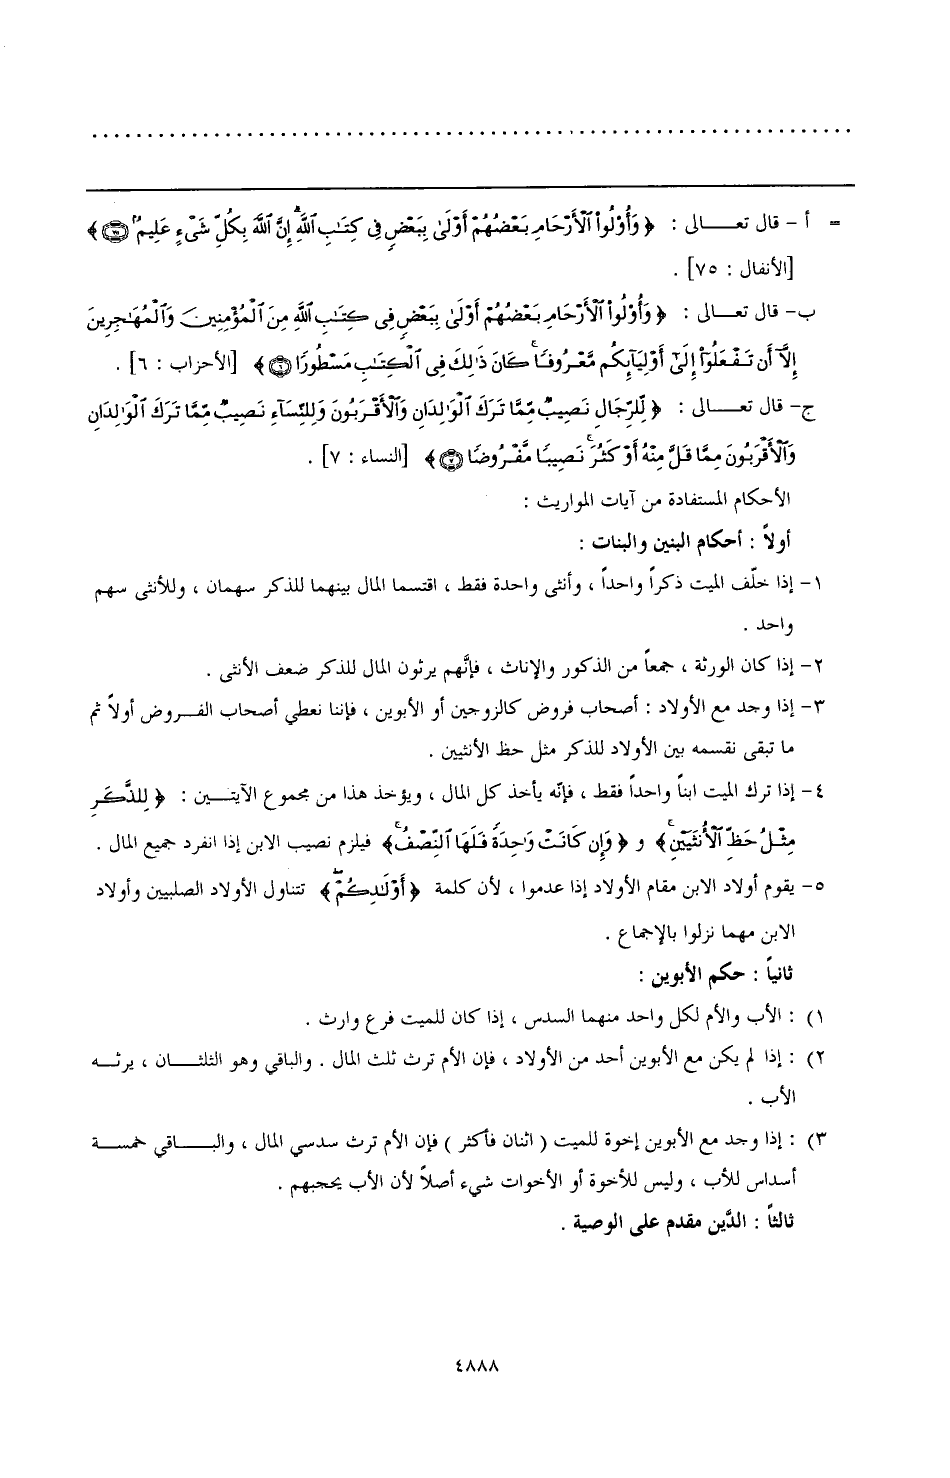 = أ – قال تعــــالى : ﴿ وَأُوْلُواْ ٱلْأَرْحَامِ بَعْضُهُمْ أَوْلَىٰ بِبَعْضٍ فِى كِتَٰبِ ٱللَّهِ إِنَّ ٱللَّهَ بِكُلِّ شَىْءٍ عَلِيمٌۢ ۝٧٥ ﴾
[الأنفال : ٧٥] .
ب– قال تعـــالى : ﴿ وَأُوْلُواْ ٱلْأَرْحَامِ بَعْضُهُمْ أَوْلَىٰ بِبَعْضٍ فِى كِتَٰبِ ٱللَّهِ مِنَ ٱلْمُؤْمِنِينَ وَٱلْمُهَٰجِرِينَ
إِلَّآ أَن تَفْعَلُوٓاْ إِلَىٰٓ أَوْلِيَآئِكُم مَّعْرُوفًا ۚ كَانَ ذَٰلِكَ فِى ٱلْكِتَٰبِ مَسْطُورًا ۝٦ ﴾ [الأحزاب : ٦] .
ج– قال تعـــالى : ﴿ لِّلرِّجَالِ نَصِيبٌ مِّمَّا تَرَكَ ٱلْوَٰلِدَانِ وَٱلْأَقْرَبُونَ وَلِلنِّسَآءِ نَصِيبٌ مِّمَّا تَرَكَ ٱلْوَٰلِدَانِ
وَٱلْأَقْرَبُونَ مِمَّا قَلَّ مِنْهُ أَوْ كَثُرَ ۚ نَصِيبًا مَّفْرُوضًا ۝٧ ﴾ [النساء : ٧] .
الأحكام المستفادة من آيات المواريث :
أولاً : أحكام البنين والبنات :
١– إذا خلّف الميت ذكراً واحداً ، وأنثى واحدة فقط ، اقتسما المال بينهما للذكر سهمان ، وللأنثى سهم
واحد .
٢– إذا كان الورثة ، جمعاً من الذكور والإناث ، فإنَّهم يرثون المال للذكر ضعف الأنثى .
٣– إذا وجد مع الأولاد : أصحاب فروض كالزوجين أو الأبوين ، فإننا نعطي أصحاب الفــروض أولاً ثم
ما تبقى نقسمه بين الأولاد للذكر مثل حظ الأنثيين .
٤– إذا ترك الميت ابناً واحداً فقط ، فإنّه يأخذ كل المال ، ويؤخذ هذا من مجموع الآيتـــين : ﴿ لِلذَّكَرِ
مِثْلُ حَظِّ ٱلْأُنثَيَيْنِ ۚ ﴾ و ﴿ وَإِن كَانَتْ وَٰحِدَةً فَلَهَا ٱلنِّصْفُ ۚ ﴾ فيلزم نصيب الابن إذا انفرد جميع المال .
٥– يقوم أولاد الابن مقام الأولاد إذا عدموا ، لأن كلمة ﴿ أَوْلَٰدِكُمْ ۖ ﴾ تتناول الأولاد الصلبيين وأولاد
الابن مهما نزلوا بالإجماع .
ثانياً : حكم الأبوين :
١) : الأب والأم لكل واحد منهما السدس ، إذا كان للميت فرع وارث .
٢) : إذا لم يكن مع الأبوين أحد من الأولاد ، فإن الأم ترث ثلث المال . والباقي وهو الثلثـــــان ، يرثـــه
الأب .
٣) : إذا وجد مع الأبوين إخوة للميت ( اثنان فأكثر ) فإن الأم ترث سدسي المال ، والبـــــاقي خمســـة
أسداس للأب ، وليس للأخوة أو الأخوات شيء أصلاً لأن الأب يحجبهم .
ثالثاً : الدَّين مقدم على الوصية .
٤٨٨٨